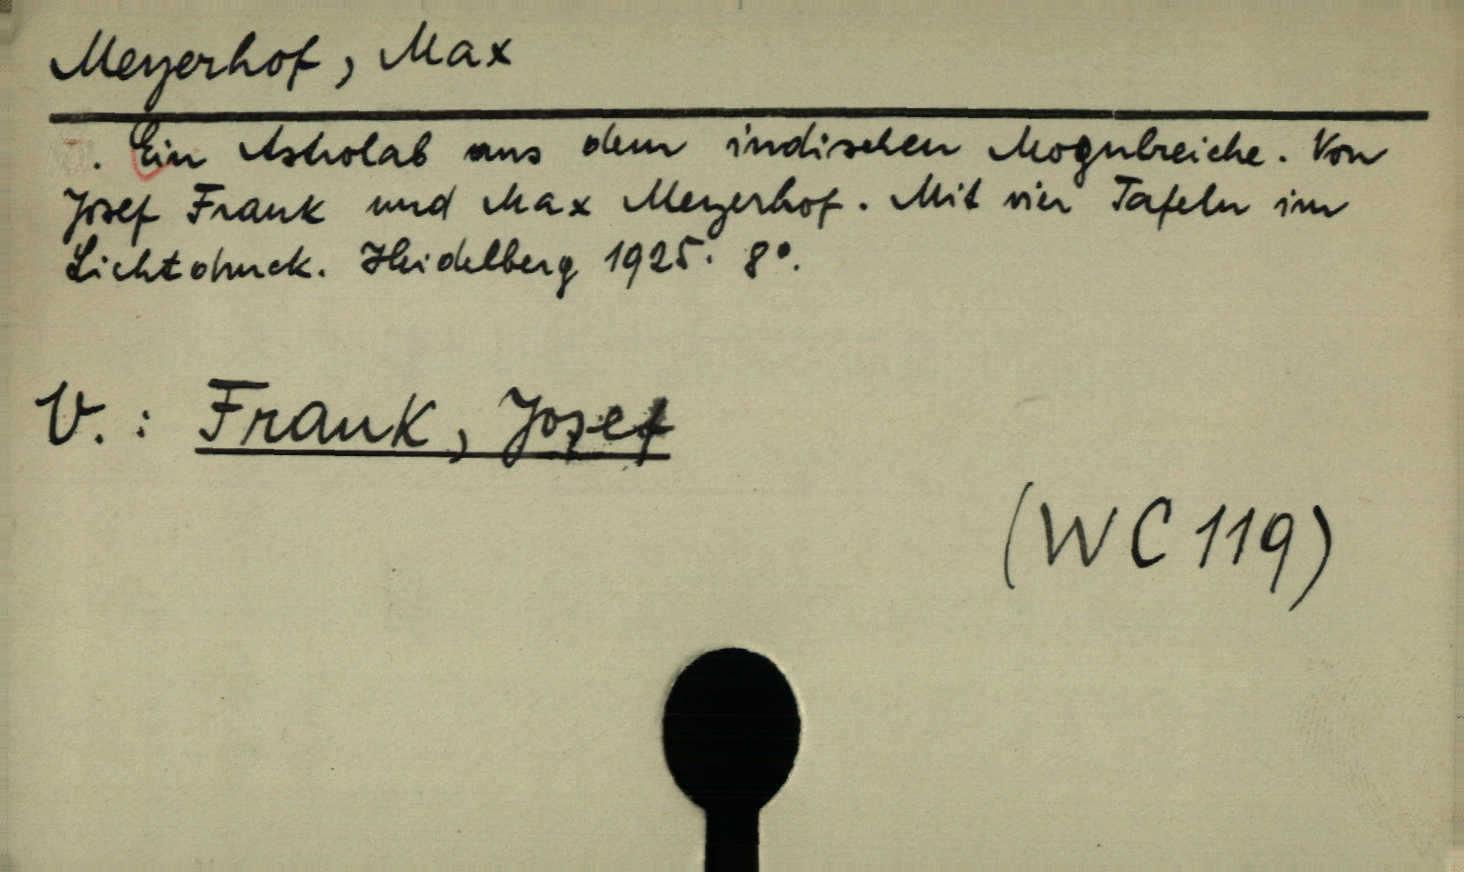 Meyerhof, Max
. Ein Astrolab aus dem indischen Mogulreiche. Von
Josef Frank und Max Meyerhof. Mit vier Tafeln im
Lichtdruck. Heidelberg 1925. 8°.
V.: Frank, Josef
(WC 119)